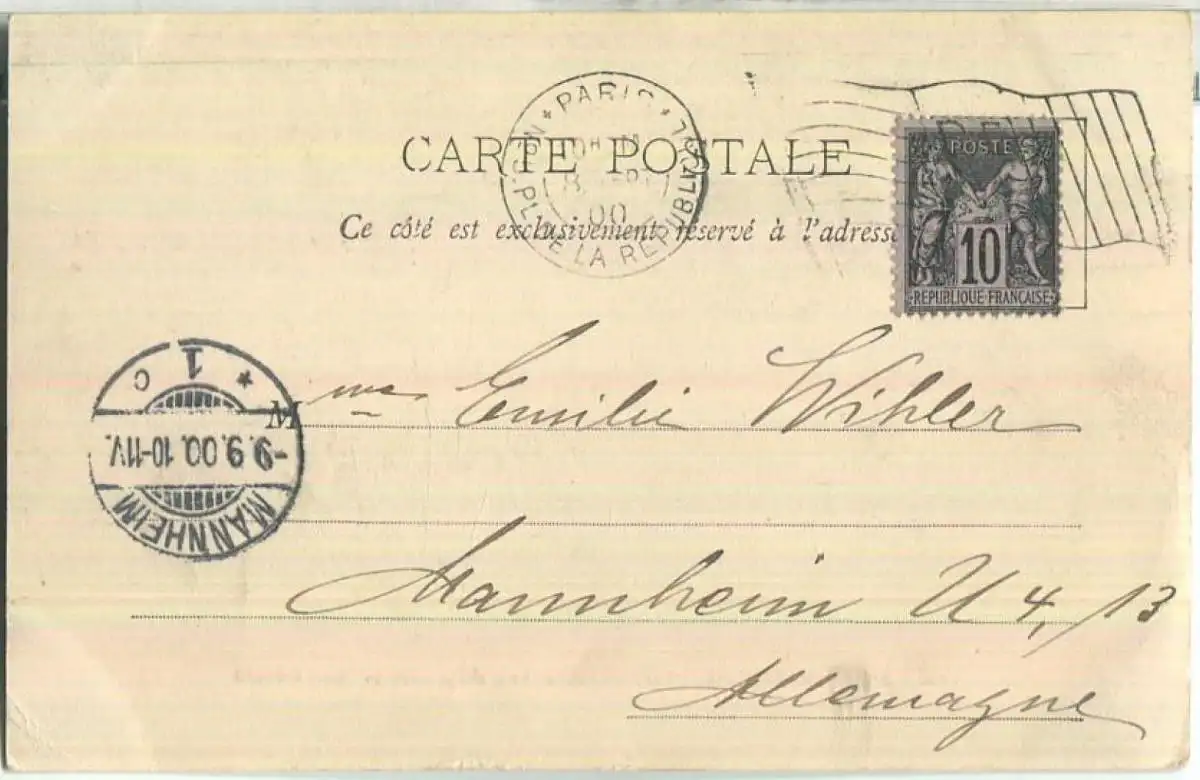 PARIS
PL. DE LA RÉPUBLIQUE
00
CARTE POSTALE
Ce côté est exclusivement réservé à l'adresse
POSTE
10
REPUBLIQUE FRANÇAISE
1
* C
-9.9.00.10-11V.
MANNHEIM
Mme Emilie Wihler
Mannheim U 4, 13
Allemagne